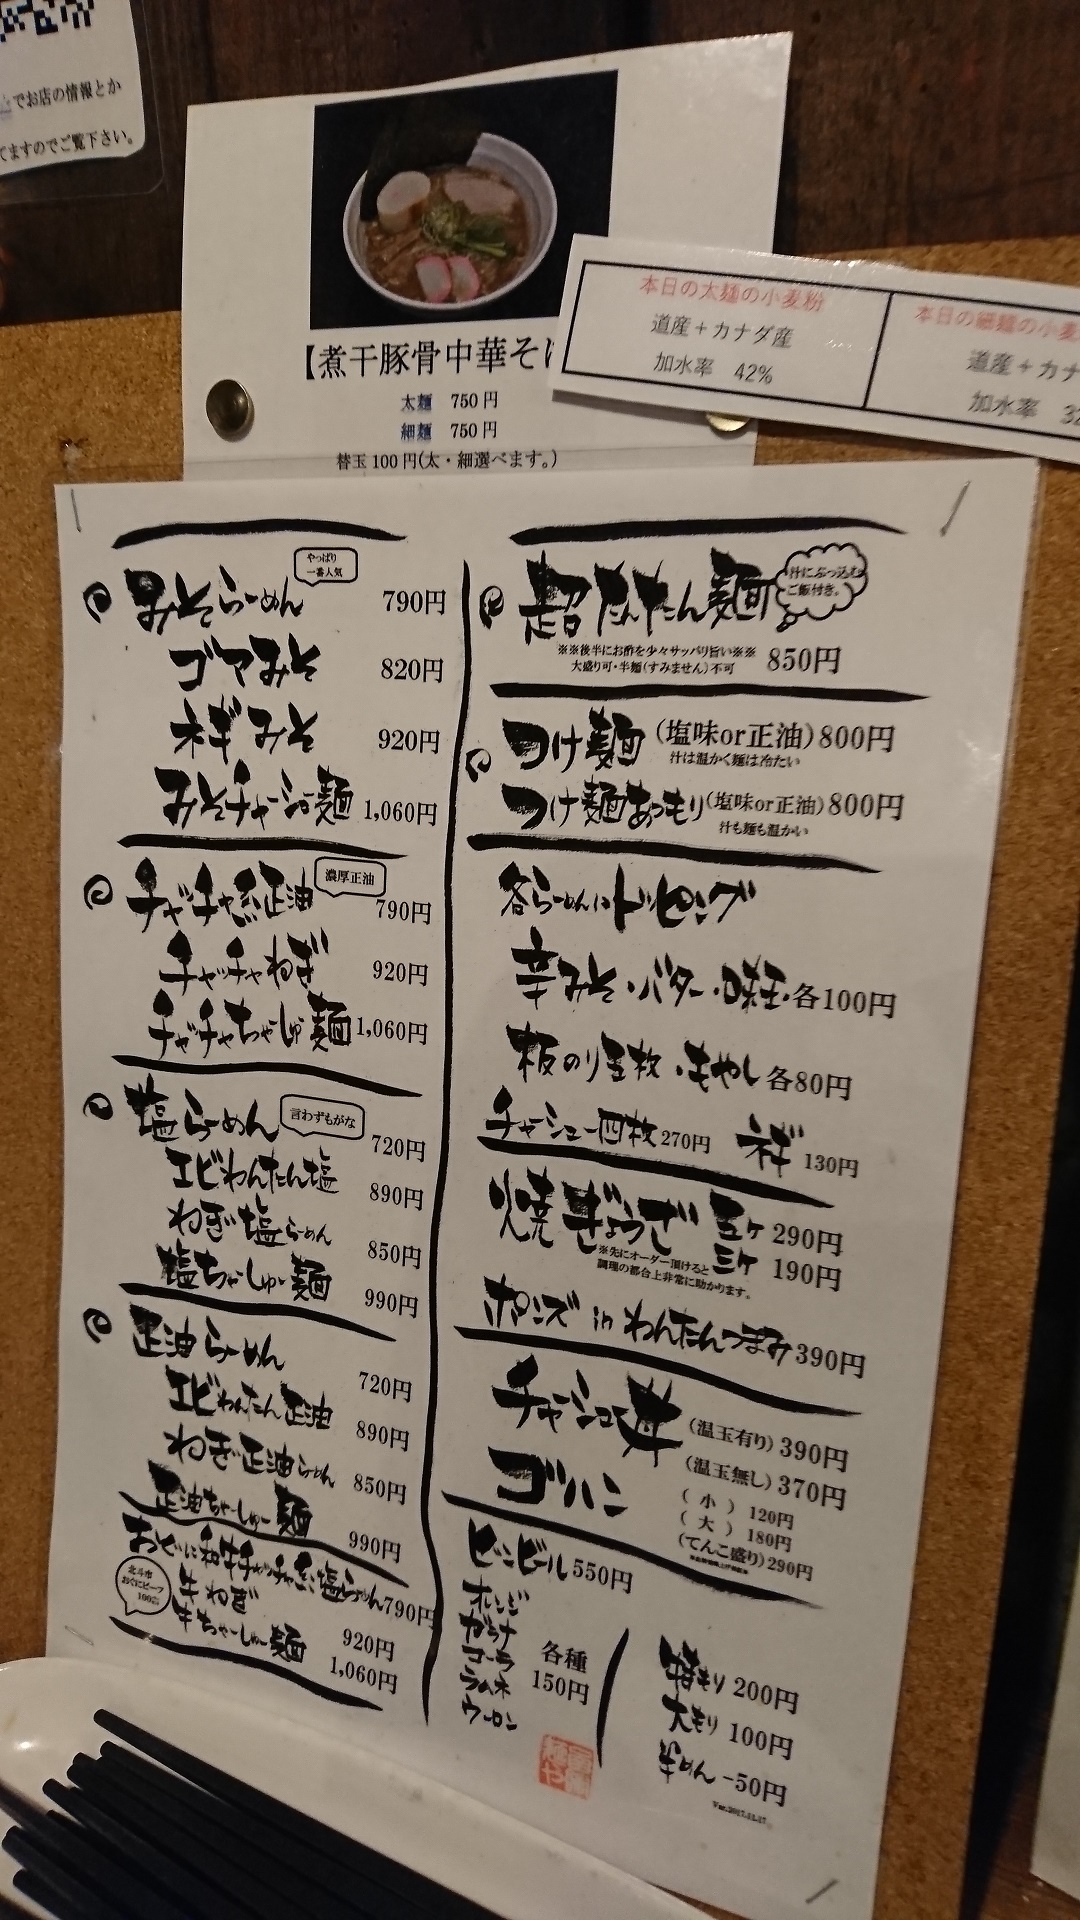 でお店の情報とか
てますのでご覧下さい。
【煮干豚骨中華そ
太麺 750円
細麺 750円
替玉100円(太・細選べます。)
本日の太麺の小麦粉
道産+カナダ産
加水率 42%
本日の細麺の小麦
道産+カナ
加水率 32
やっぱり
一番人気
みそらーめん 790円
ゴマみそ 820円
ネギみそ 920円
みそチャーシュー麺 1,060円
濃厚正油
チャッチャ系正油 790円
チャッチャねぎ 920円
チャッチャちゃーしゅー麺 1,060円
塩らーめん 言わずもがな 720円
エビわんたん塩 890円
ねぎ塩らーめん 850円
塩ちゃーしゅー麺 990円
正油らーめん 720円
エビわんたん正油 890円
ねぎ正油らーめん 850円
正油ちゃーしゅー麺 990円
おぐに和牛チャッチャ系塩らーめん 790円
北斗市
おぐにビーフ
100%
牛ねぎ 920円
牛ちゃーしゅー麺 1,060円
超たんたん麺
汁にぶっ込む
ご飯付き。
※※後半にお酢を少々サッパリ旨い※※
大盛り可・半麺(すみません)不可
850円
つけ麺 (塩味or正油)800円
汁は温かく麺は冷たい
つけ麺あつもり(塩味or正油)800円
汁も麺も温かい
各らーめんにトッピング
辛みそ・バター・味玉・各100円
板のり五枚・もやし各80円
チャーシュー四枚270円 ネギ 130円
焼ぎょうざ 五ケ 290円
三ケ 190円
※先にオーダー頂けると
調理の都合上非常に助かります。
ポンズinわんたんつまみ390円
チャーシュー丼 (温玉有り)390円
(温玉無し)370円
ゴハン (小) 120円
(大) 180円
(てんこ盛り)290円
ビンビール550円
オレンジ
ガラナ
コーラ
ラムネ
ウーロン
各種
150円
特もり 200円
大もり 100円
半めん -50円
Ver.2017.11.17